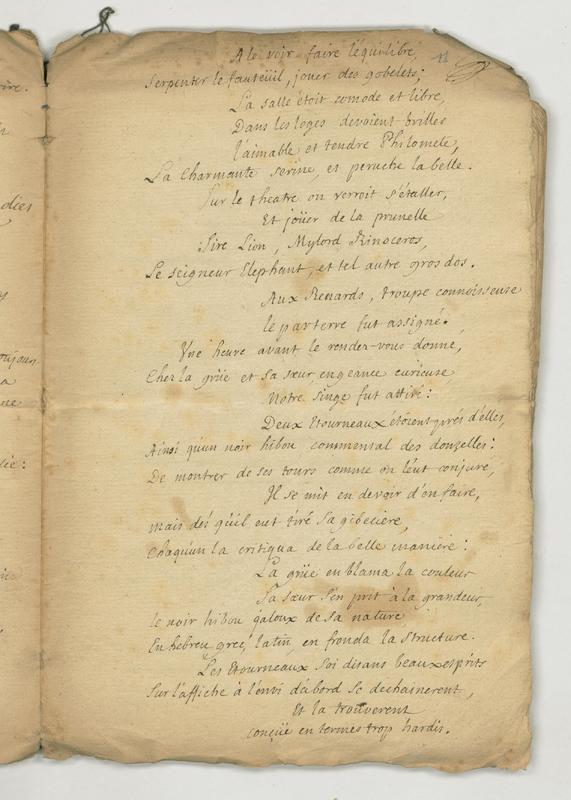 A le voir faire l'équilibre, 11
Serpenter le fauteüil, jouer des gobelets:
La salle étoit comode et libre,
Dans les loges devoient briller
l'aimable et tendre Philomele,
La Charmante serine, et peruche la belle.
Sur le theatre on verroit s'étaller,
Et joüer de la prunelle
Sire Lion, Mylord Rinoceros,
Le seigneur Elephant, et tel autre gros dos.
Aux Renards, troupe connoisseuse
le parterre fut assigné.
Une heure avant le rendez-vous donné,
Chez la grüe et sa sœur, engeance curieuse
Notre singe fut attiré:
Deux Etourneaux étoient prés d'elles,
Ainsi qu'un noir hibou commensal des donzelles:
De montrer de ses tours comme on l'eut conjuré,
Il se mit en devoir d'en faire,
mais dés qu'il eut tiré sa gibeciere,
Chaqu'un la critiqua de la belle maniere:
La grüe en blama la couleur
Sa sœur s'en prit à la grandeur,
le noir hibou jaloux de sa nature
En hebreu grec, latin, en fronda la structure.
Les Etourneaux soi disans beaux esprits
Sur l'affiche à l'envi d'abord se dechainerent,
Et la trouverent
conçüe en termes trop hardis.